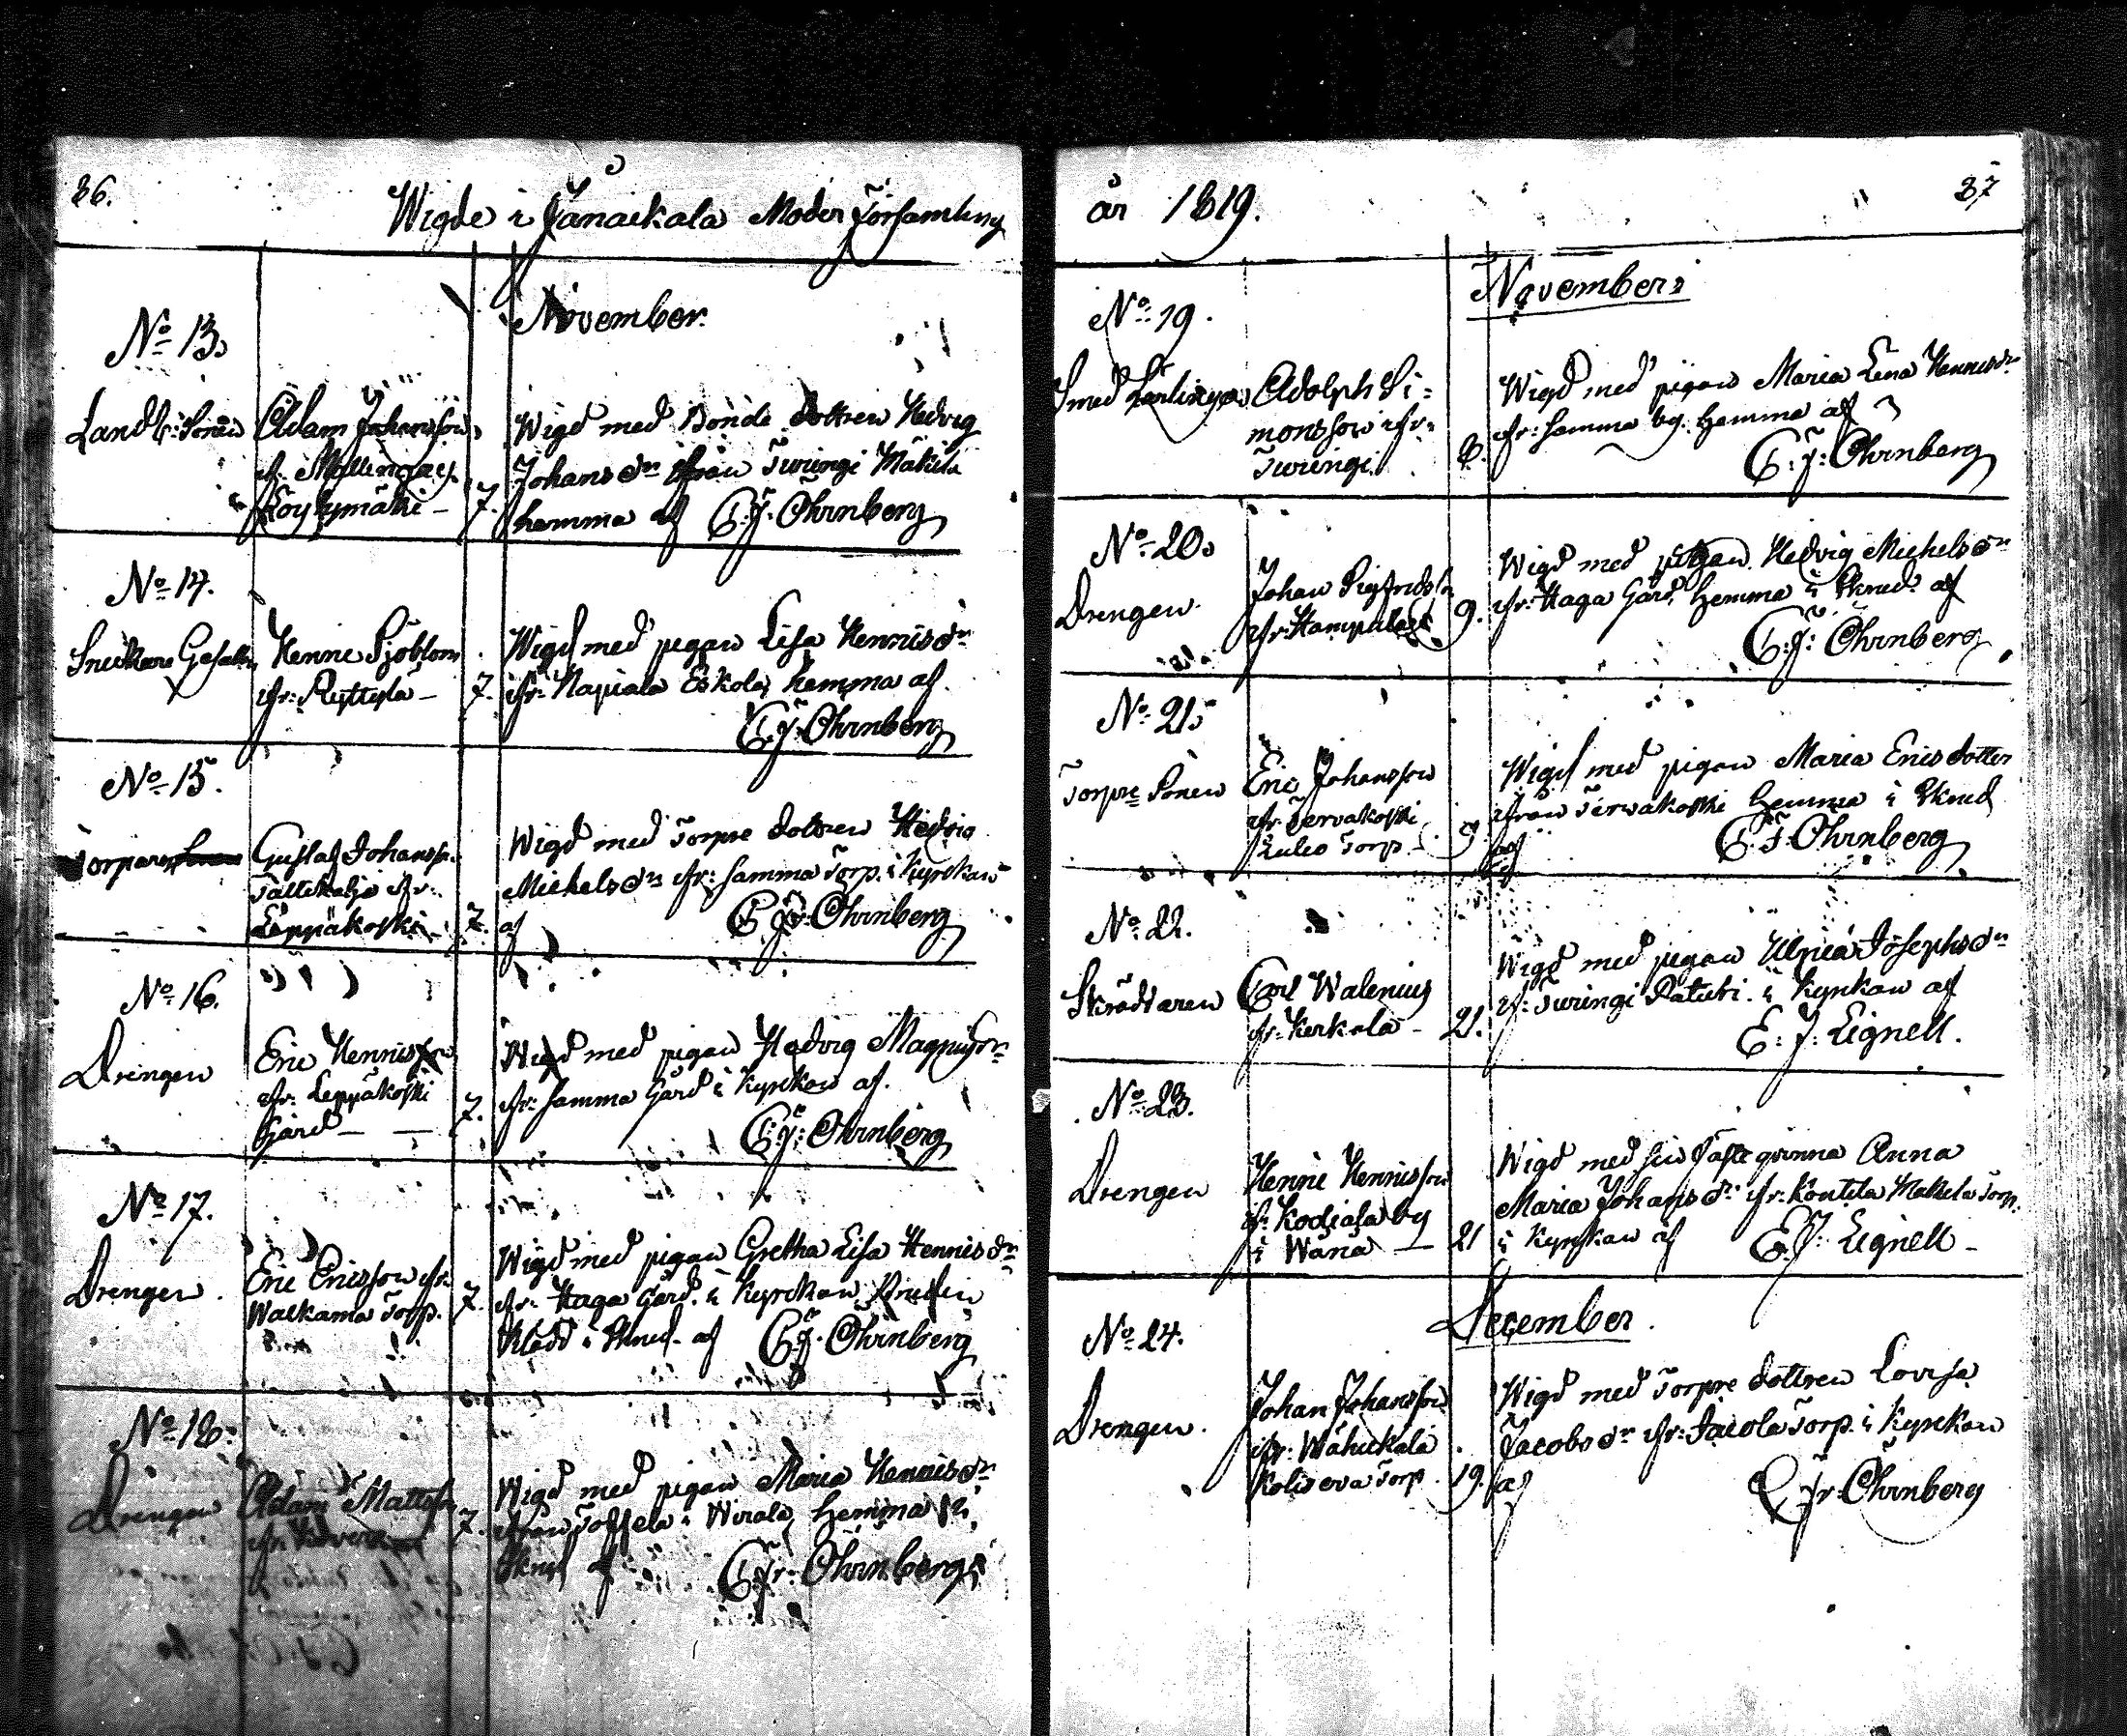 86.
Wigde i Janackala Moder Församling
November.
No 13.
Landb: Sonen
Adam Johansson
fr:
7.
Wigd med Bonde dottren Hedvig
Johans dr ifrån Turingi Mäkilä
hemma af C: J: Öhrnberg
No 14.
Snickare Gesällen
Henric Sjöblom
ifr: Ryttylä —
7.
Wigd med pigan Lisa Henricsdr
ifr: Napiala Eskola, hemma af
C: J: Öhrnberg
No 15.
Torparen
Gustaf Johanss:
ifr:
Leppäkoski —
7.
Wigd med Torpre dottren Hedvig
Michelsdr ifr: samma Torp. i Kyrckan
af C Fr: Öhrnberg
No 16.
Drengen
Eric Henricsson
ifr: Leppäkoski
Gård — —
7.
Wigd med pigan Hedvig Magnusdr
ifr: samma Gård i Kyrckan af.
C: J: Öhrnberg
No 17.
Drengen.
Eric Ericsson ifr:
Walkama Torp.
7.
Wigd med pigan Gretha Lisa Henricsdr
ifr: Haga Gård. i Kyrckan, Bruden
Klädd i Skrud. af C: J: Öhrnberg
No 18.
Drengen
Adam Mattsson
7.
Wigd med pigan Maria Henricsdr
ifrån Toffela i Wirala, hemma i
Skrud af C: Fr: Öhrnberg
år 1819.
87
November
No 19.
Smed Lärlingen
Adolph Si-
monsson ifr:
Turingi
8.
Wigd med pigan Maria Lena Henricsdr
ifr: samma by. hemma af
C: J: Öhrnberg
No 20.
Drengen.
Johan Sigfridss:
9.
Wigd med pigan Hedvig Michelsdr
ifr: Haga Gård, hemma i Skrud. af
C: J: Öhrnberg
No 21.
Torpre Sonen
Eric Johansson
ifr: Tervakoski
Torp —
9.
Wigd med pigan Maria Ericsdotter
ifrån Terwakoski hemma i Skrud
af C. F. Öhrnberg
No 22.
Skräddaren
Carl Walenius
ifr: Kerkola —
21.
Wigd med pigan Ulrica Josephsdr
if: Turingi Ratuti. i Kyrkan af
E. J. Lignell.
No 23.
Drengen
Henric Henricsson
if: by
i Wånå —
21
Wigd med sin Fästeqvinna Anna
Maria Johansdr ifr: Konttila Torp.
i Kyrckan af E. J: Lignell —
December.
No 24.
Drengen.
Johan Johansson
ifr: Wähickälä
Torp.
19.
Wigd med Torpre dottren Lovisa
Jacobsdr ifr: Torp. i Kyrckan
af C Fr: Öhrnberg